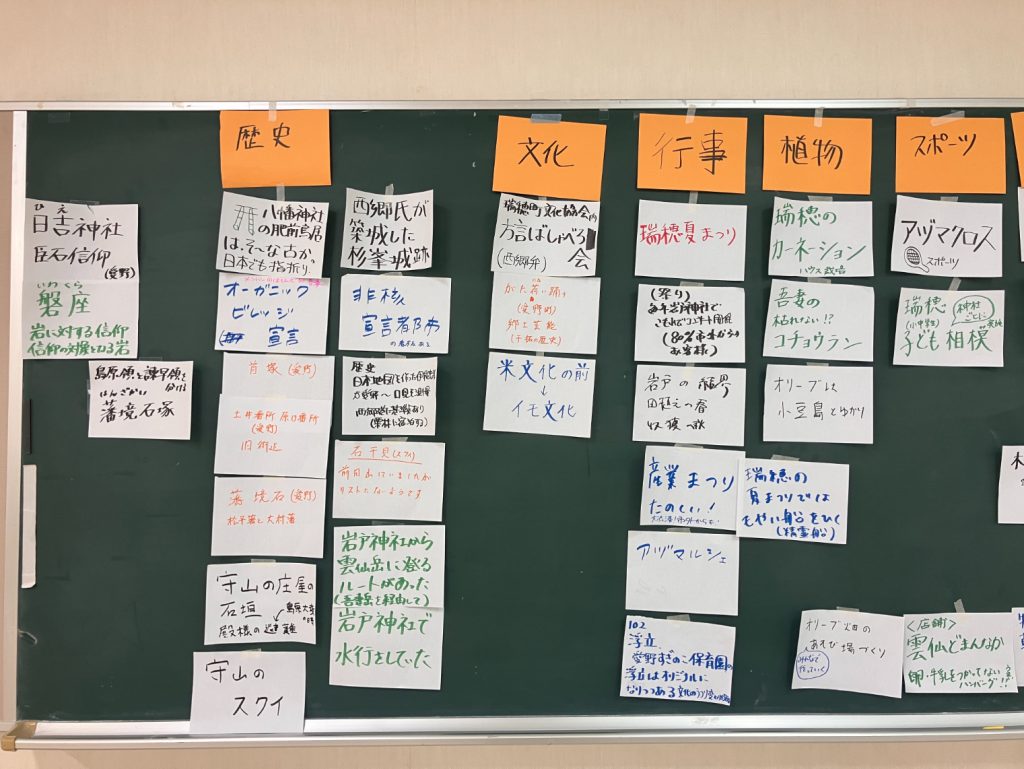 歴史
文化
行事
植物
スポーツ
ひえ
日吉神社
巨石信仰
(愛野)
いわくら
磐座
岩に対する信仰
信仰の対象となる岩
島原領と諫早領を
分ける
はんざかい
藩境石塚
八幡神社
の肥前鳥居
は、そ〜な古か。
日本でも指折り。
オーガニック
ビレッジ
宣言
首塚(愛野)
土井番所 原口番所
(愛野)
旧街道
藩境石(愛野)
松平藩と大村藩
守山の庄屋の
石垣
殿様の避難
守山の
スクイ
西郷氏が
築城した
杉峯城跡
非核
宣言
歴史
西郷
石干見(スクイ)
岩戸神社から
雲仙岳に登る
ルートがあった
(吾妻岳を経由して)
岩戸神社で
水行をしていた
瑞穂町文化協会
方言ばしゃべろ
会
(西郷弁)
がた荷い踊り
(愛野町)
郷土芸能
(干拓の歴史)
米文化の前
↓
イモ文化
瑞穂夏まつり
(祭り)
毎年岩戸神社で
こもれびコンサート開催
お客様)
岩戸の
収穫
産業まつり
たのしい!
アヅマルシェ
102
浮立、
愛野すぎのこ保育園の
浮立はオリジナルに
なりつつある
瑞穂の
カーネーション
ハウス栽培
吾妻の
枯れない!?
コチョウラン
オリーブは
小豆島とゆかり
瑞穂の
夏まつりでは
もやい船をひく
(精霊船)
オリーブ畑の
あそび場づくり
みんなで
作っていく
アヅマクロス
スポーツ
瑞穂
(小中学生)
子ども相撲
神社
ごとに
実施
<店舗>
雲仙どまんなか
卵・牛乳をつかってない
ハンバーグ!!